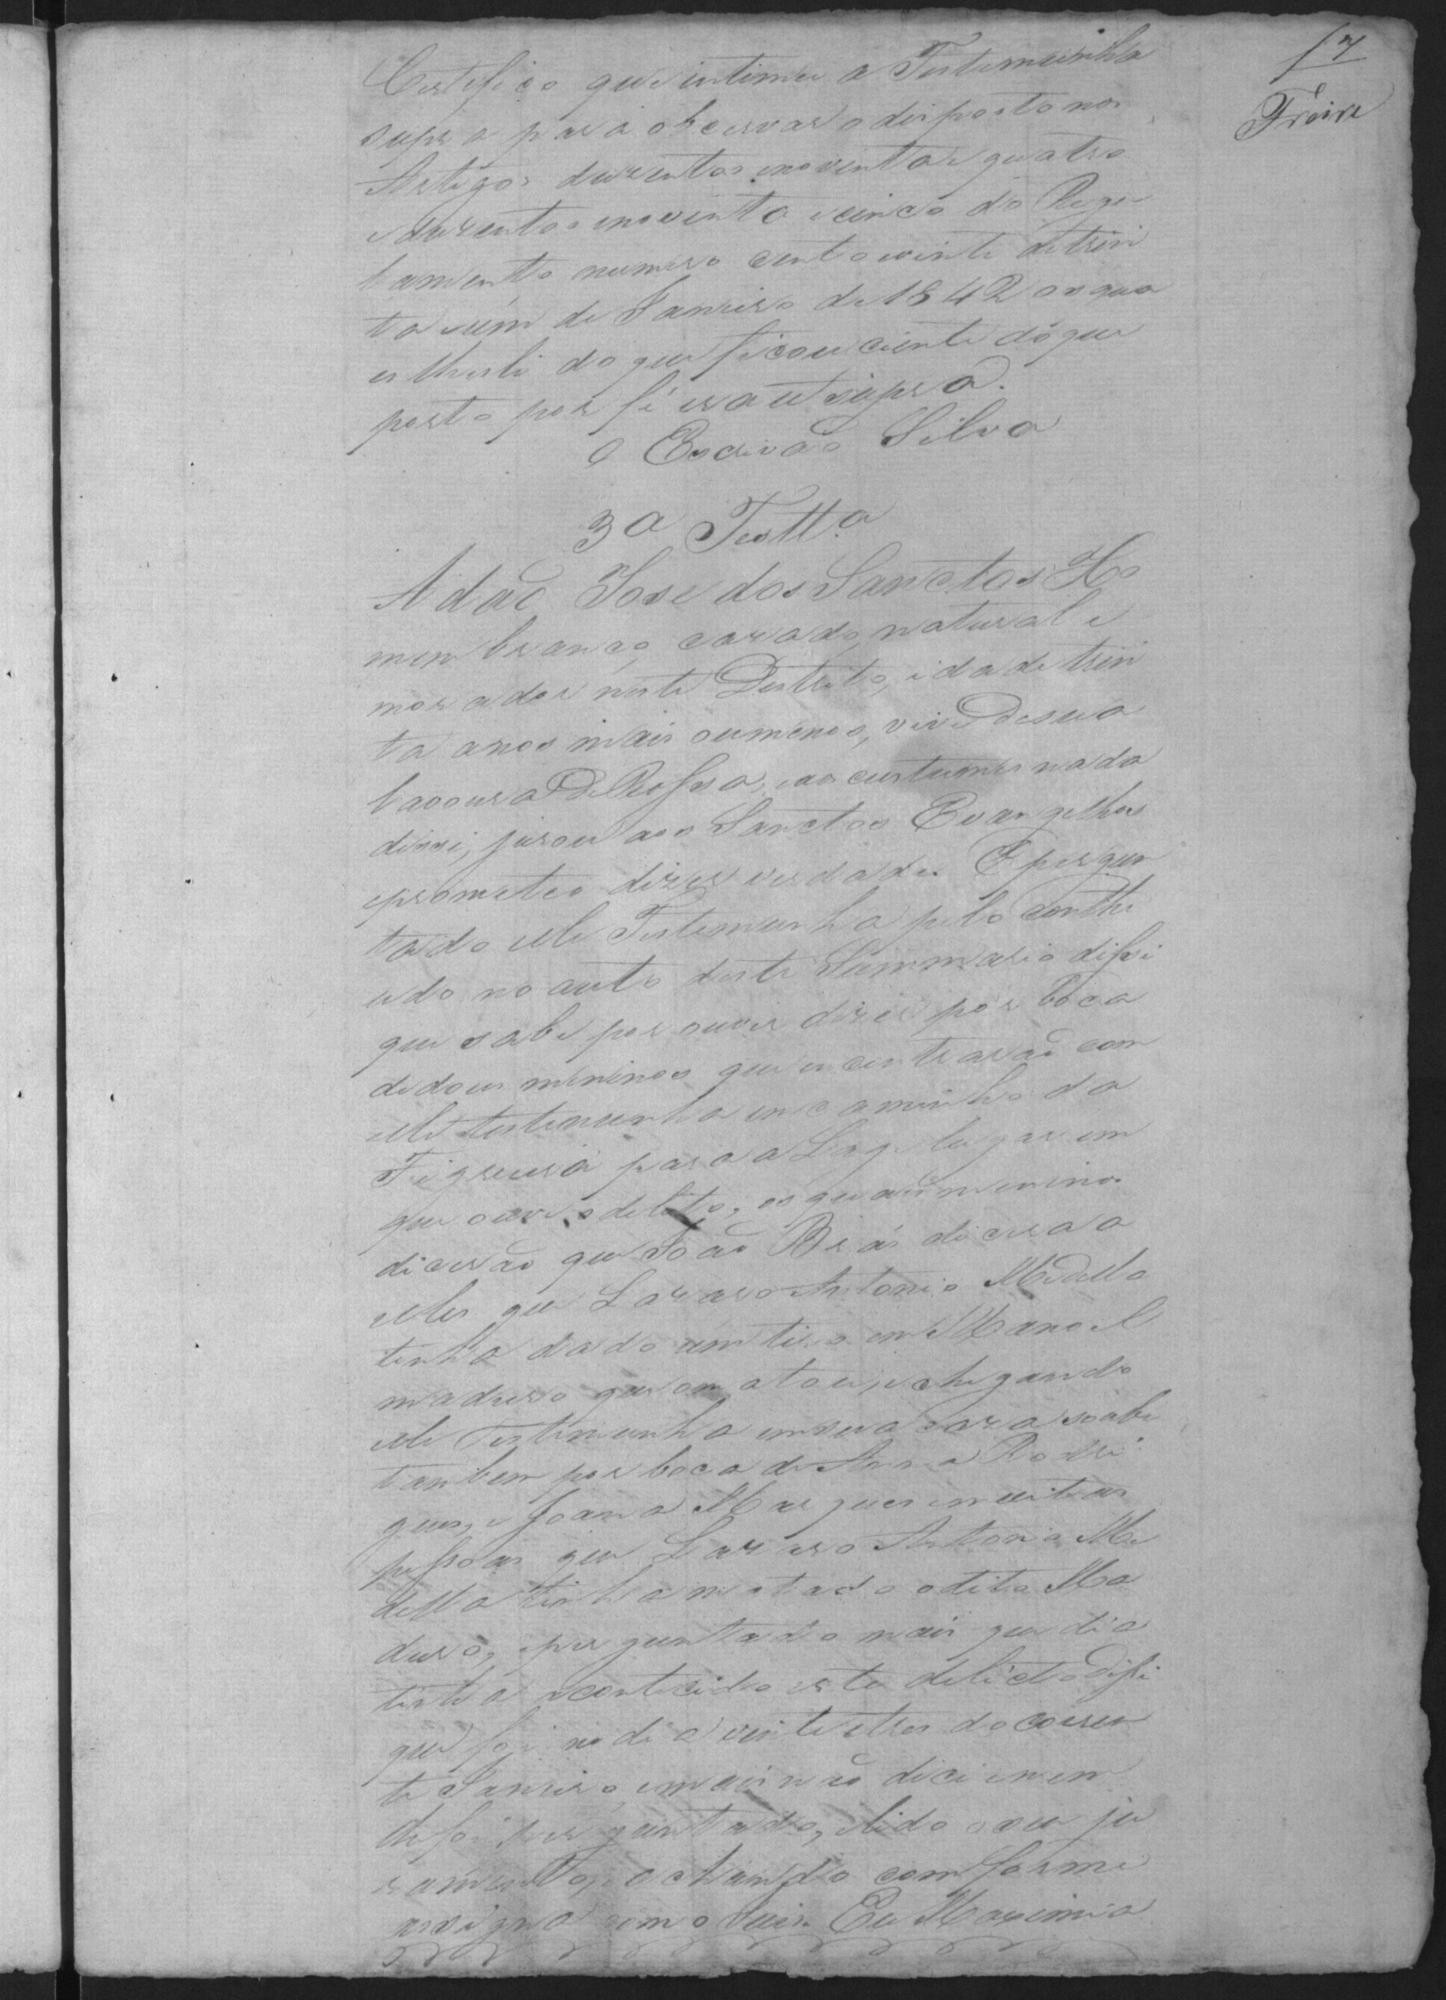 17
Freire
Certefico que intimei a Testemunha
supra para observar o disposto nos
Artigos duzentos enoventa e quatro
e duzentos enoventa e cinco do Regu
lamento numero cento evinte de trin
ta eum de Janeiro de 1842 os quaes
lhe li do que ficou ciente do que
porto por fé era ut supra.
O Escrivão Silva
3a Testt.a
Adão Jose dos Sanctos Ho
mem branco, cazado, natural e
morador neste Destrito, idade trin
ta anos mais oumenos, vive desua
lavoura De Rossa, eaos custumes nada
disse, jurou aos Sanctos Evangelhos
eprometeo dizer verdade. E pergun
tado elle Testemunha pelo conthe
udo no auto deste Summario disse
que sabe por ouvir dizer por boca
de dous meninos que encontrarão com
elle testemunha em caminho da
Figueira para a Lage lugar em
que ouve o delito, os quais meninos
dicerão que João Brás dicera a
elles que Lazaro Antonio Medella
tinha dado um tiro em Manoel
maduro que o matou, e chegando
elle Testemunha emsua caza soube
tambem por boca de Anna Rodri
gues, e Joana Marques emuitas
pessoas que Lazaro Antonio Me
della tinha matado o dito Ma
duro, eperguntado mais que dia
tinha acontecido este delicto disse
que foi no dia vinte etres do corren
te Janeiro, emais não dice nem
lhe foi perguntado, elido o seu ju
ramento, e achando comforme
assigna com o Juis. Eu Maximia